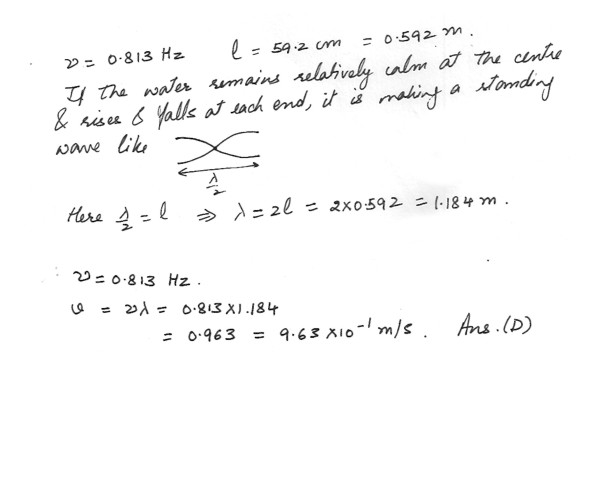 ν = 0.813 Hz l = 59.2 cm = 0.592 m.
If the water remains relatively calm at the centre
& rises & falls at each end, it is making a standing
wave like
λ/2
Here λ/2 = l ⇒ λ = 2l = 2×0.592 = 1.184 m.
ν = 0.813 Hz.
v = νλ = 0.813×1.184
= 0.963 = 9.63×10⁻¹ m/s. Ans. (D)